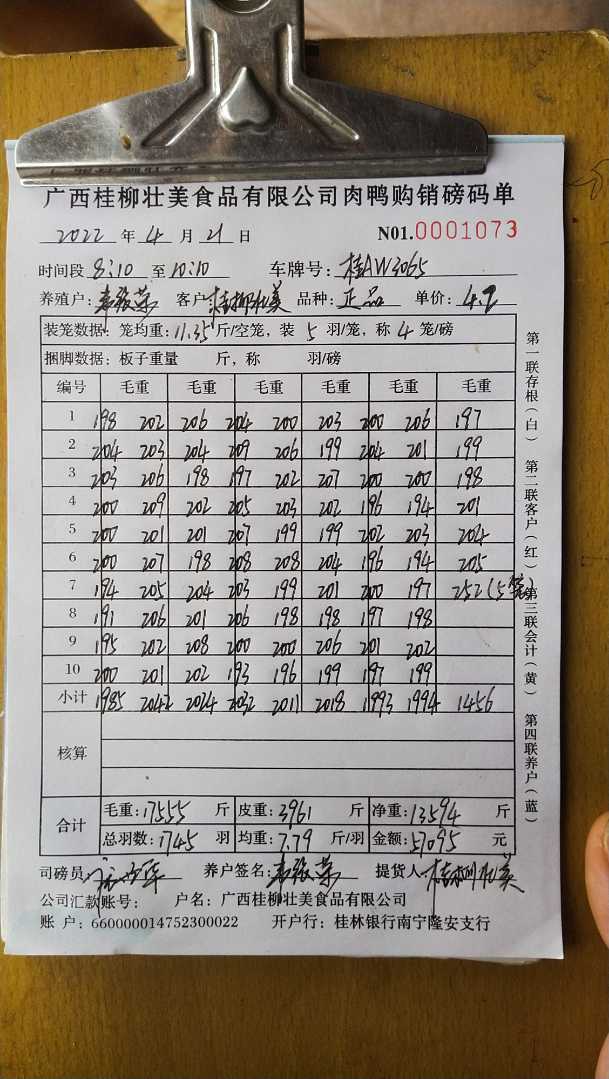 广西桂柳壮美食品有限公司肉鸭购销磅码单
2022 年 4 月 21 日 N01.0001073
时间段 8:10 至 10:10 车牌号: 桂AW3065
养殖户: 客户: 桂柳壮美 品种: 正品 单价: 4.2
装笼数据: 笼均重: 11.35 斤/空笼, 装 5 羽/笼, 称 4 笼/磅
捆脚数据: 板子重量 斤, 称 羽/磅
编号 毛重 毛重 毛重 毛重 毛重 毛重
1 198 202 206 204 200 203 200 206 197
2 204 203 204 209 206 199 204 201 199
3 203 206 198 197 202 207 200 200 198
4 200 209 202 205 203 202 196 194 201
5 200 201 201 207 199 199 202 203 204
6 200 207 198 208 208 204 196 194 205
7 194 205 204 203 199 201 200 197 252(5笼)
8 191 206 201 206 198 198 197 198
9 195 202 208 200 200 206 201 202
10 200 201 202 193 196 199 197 199
小计 1985 2042 2024 2032 2011 2018 1993 1994 1456
核算
合计 毛重: 17555 斤 皮重: 3961 斤 净重: 13594 斤
总羽数: 1745 羽 均重: 7.79 斤/羽 金额: 57095 元
司磅员 养户签名: 提货人 桂柳壮美
公司汇款账号: 户名: 广西桂柳壮美食品有限公司
账 户: 660000014752300022 开户行: 桂林银行南宁隆安支行
第一联存根(白) 第二联客户(红) 第三联会计(黄) 第四联养户(蓝)